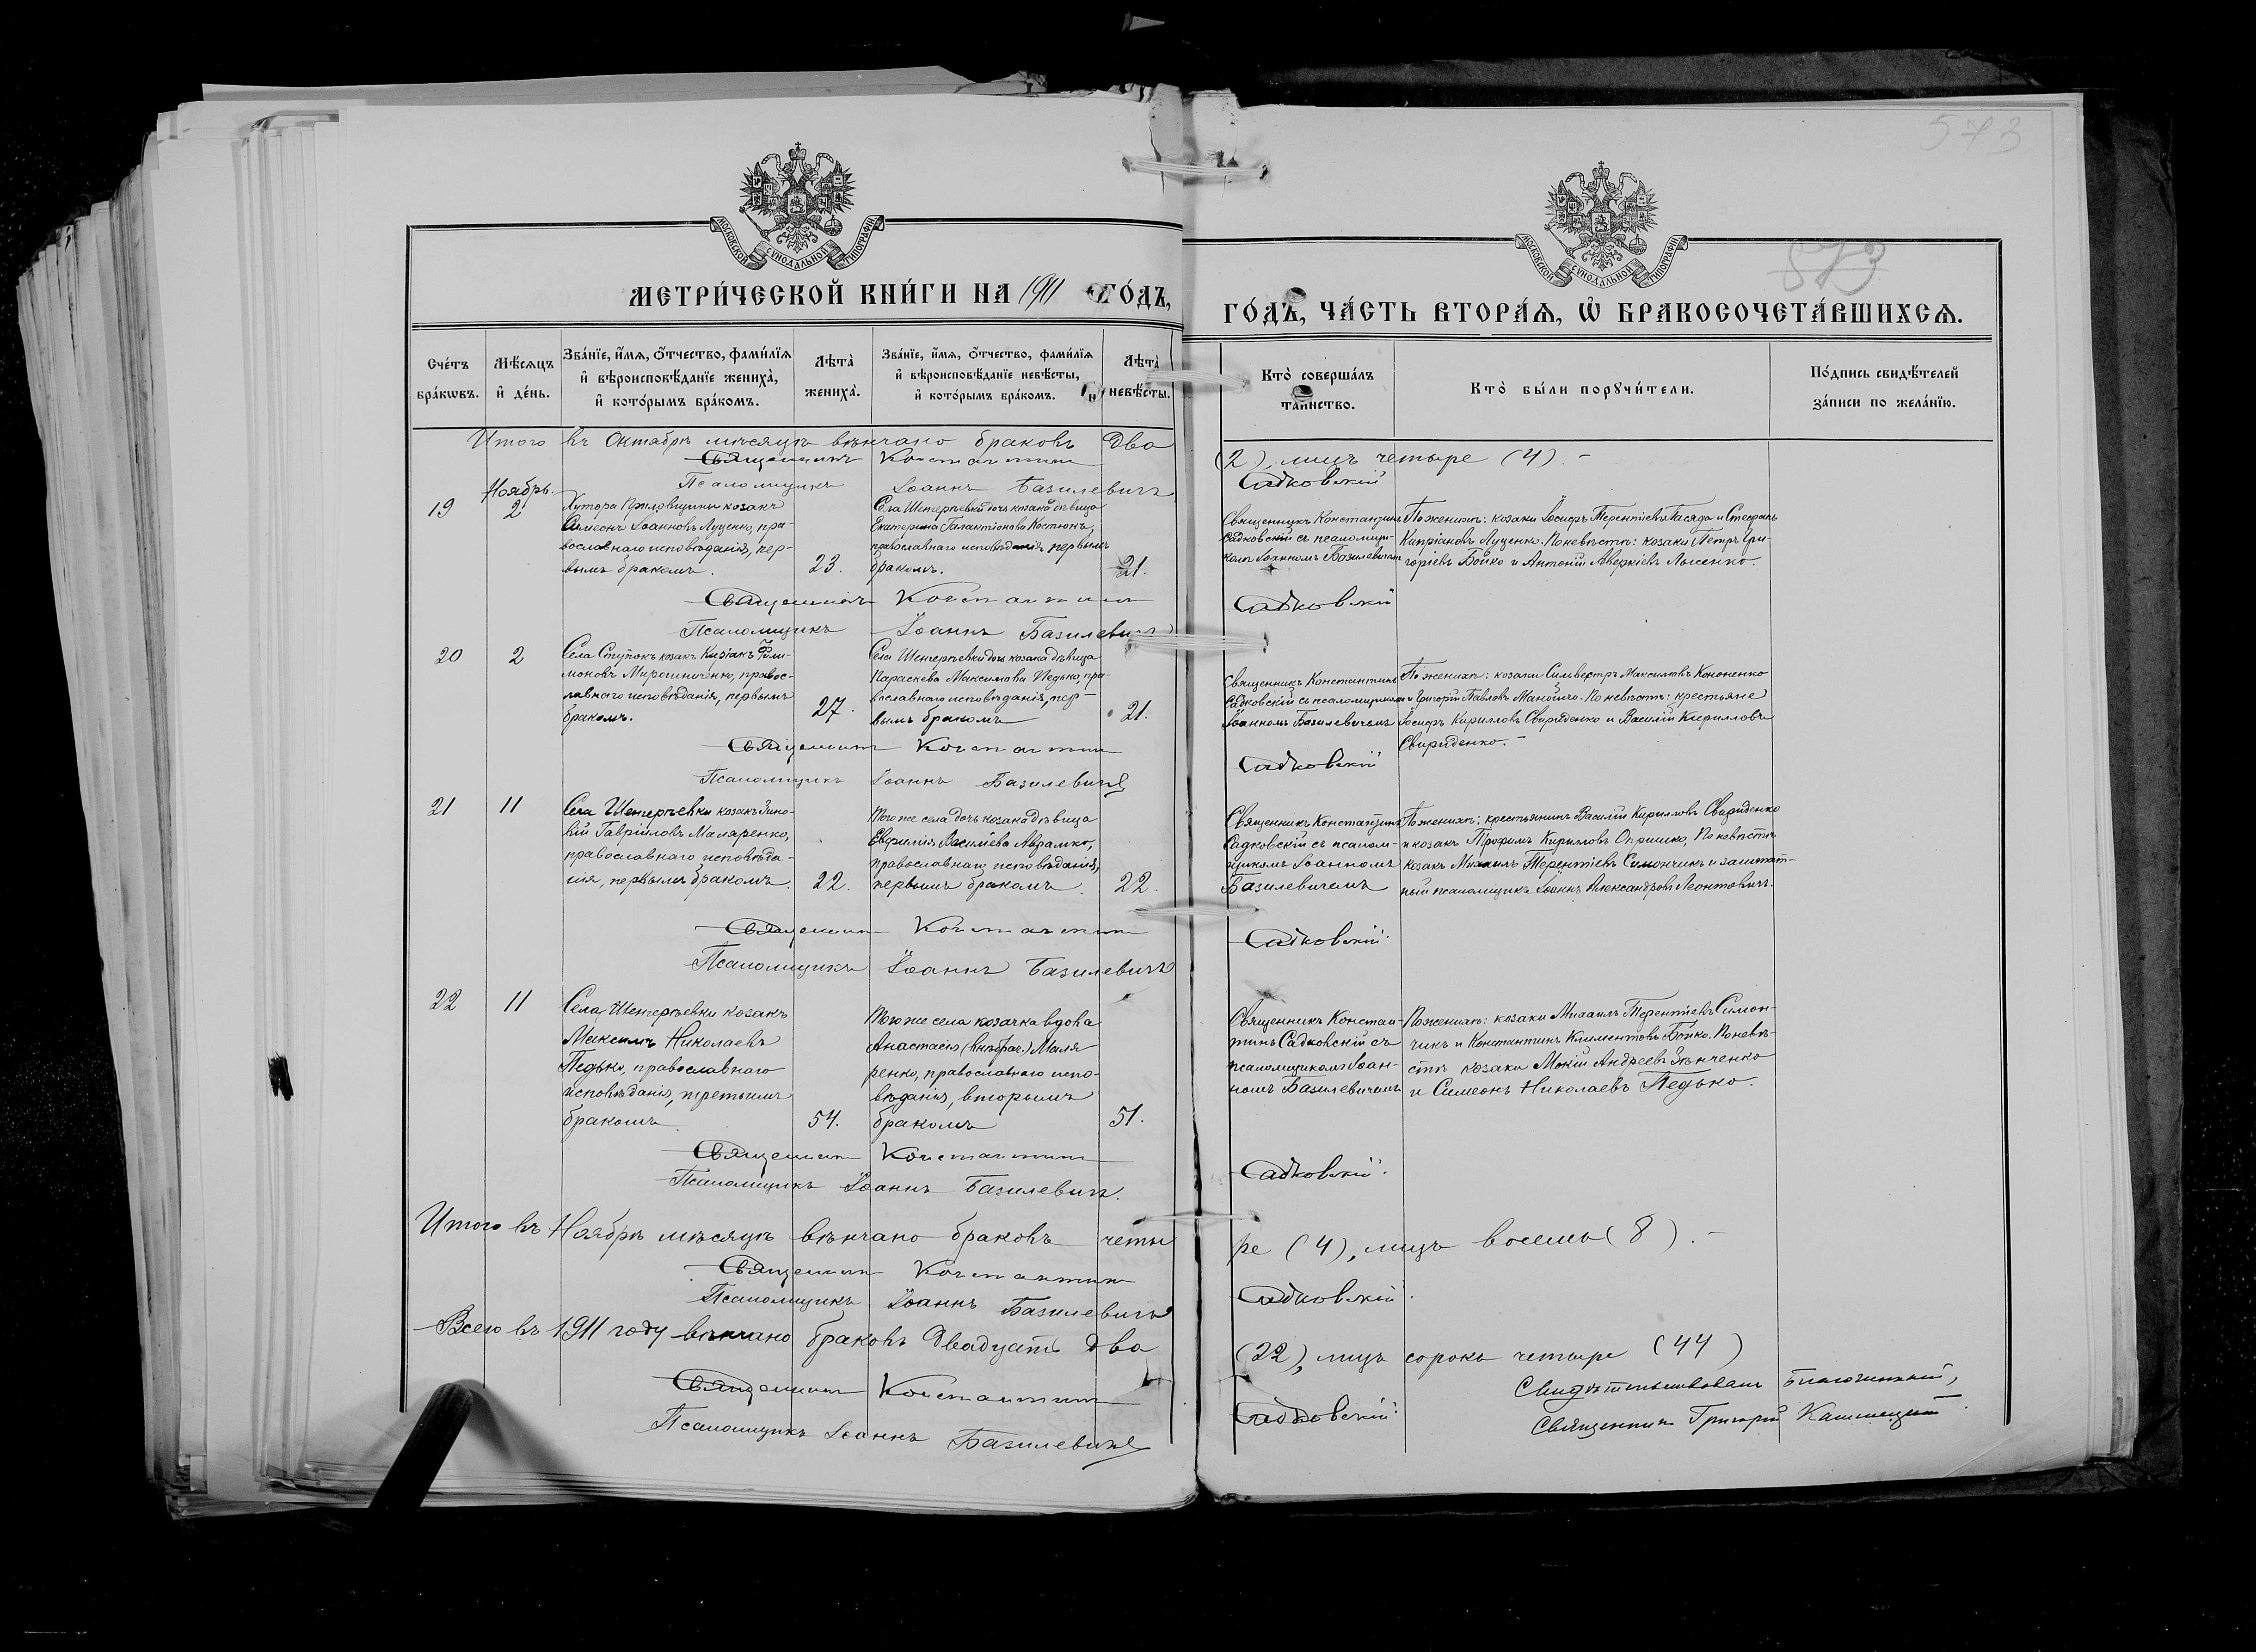 573
МОСКОВСКОЙ СѴНОДАЛЬНОЙ ТИПОГРАФІИ
МОСКОВСКОЙ СѴНОДАЛЬНОЙ ТИПОГРАФІИ
573
МЕТРИ́ЧЕСКОЙ КНИ́ГИ НА 1911 ГО́ДЪ,
ГО́ДЪ, ЧА́СТЬ ВТОРА́Ѧ, Ѡ҆ БРАКОСОЧЕТА́ВШИХСѦ.
Сче́тъ бра́кѡвъ.
Мѣ́сѧцъ и҆ де́нь.
Зва́нїе, и҆́мѧ, ѻ҆́тчество, фами́лїѧ
и҆ вѣроисповѣ́данїе жениха̀,
и҆ кото́рымъ бра́комъ.
Лѣ́та̀ жениха̀.
Зва́нїе, и҆́мѧ, ѻ҆́тчество, фами́лїѧ
и҆ вѣроисповѣ́данїе невѣ́сты,
и҆ кото́рымъ бра́комъ.
Лѣ́та̀ невѣ́сты.
Кто̀ соверша́лъ
та́инство.
Кто̀ бы́ли порꙋчи́тели.
По́дпись свидѣ́телей
за́писи по жела́нїю.
Итого въ Октябрѣ мѣсяцѣ вѣнчано браковъ Два
(2), лицъ четыре (4). -
Священникъ Константинъ
Садковскій
Псаломщикъ Іоаннъ Базилевичъ
Ноябрь.
19
2
козакъ
Симеонъ Іоанновъ Луценко, пра-
вославнаго исповѣданія, пер-
вымъ бракомъ.
23.
дочь козака дѣвица
Екатерина Галактіонова Костюкъ,
православнаго исповѣданія, первымъ
бракомъ.
21.
Священникъ Константинъ
Садковскій съ псаломщи-
комъ Іоанномъ Базилевичемъ
По женихѣ: козаки Іосифъ Терентіевъ и Стефанъ
Кипріановъ Луценко. По невѣстѣ: козаки Петръ Гри-
горіевъ Бойко и Антоній Аверкіевъ Лысенко.
Священникъ Константинъ
Садковскій
Псаломщикъ Іоаннъ Базилевичъ
20
2
Села Ступокъ козакъ Фили-
моновъ Мирошниченко, правос-
лавнаго исповѣданія, первымъ
бракомъ.
27.
Села дочь козака дѣвица
Параскева Максимова Педько, пра-
вославнаго исповѣданія, пер-
вымъ бракомъ
21.
Священникъ Константинъ
Садковскій съ псаломщикомъ
Іоанномъ Базилевичемъ
По женихѣ: козаки Сильвестръ Максимовъ Кононенко
и Григорій Павловъ. По невѣстѣ: крестьяне
Іосифъ Кирилловъ Свириденко и Василій Кирилловъ
Свириденко. -
Священникъ Константинъ
Садковскій
Псаломщикъ Іоаннъ Базилевичъ
21
11
Села козакъ Зино-
вій Гавріиловъ Маляренко,
православнаго исповѣда-
нія, первымъ бракомъ.
22.
Того же села дочь козака дѣвица
Евфимія Василіева Аврамко,
православнаго исповѣданія,
первымъ бракомъ.
22.
Священникъ Константинъ
Садковскій съ псалом-
щикомъ Іоанномъ
Базилевичемъ
По женихѣ: крестьянинъ Василій Кирилловъ Свириденко
и козакъ Трофимъ Кирилловъ Опришко, По невѣстѣ:
козакъ Михаилъ Терентіевъ Симончикъ и заштат-
ный псаломщикъ Іоаннъ Александровъ Леонтовичъ.
Священникъ Константинъ
Садковскій.
Псаломщикъ Іоаннъ Базилевичъ
22
11
Села козакъ
Максимъ Николаевъ
Педько, православнаго
исповѣданія, третьимъ
бракомъ.
54.
Того же села козачка вдова
Анастасія (внѣбрач.) Маля
ренко, православнаго испо-
вѣданія, вторымъ
бракомъ
51.
Священникъ Констан-
тинъ Садковскій съ
псаломщикомъ Іоан-
номъ Базилевичемъ
По женихѣ: козаки Михаилъ Терентіевъ Симон-
чикъ и Константинъ Климентовъ Бойко. По невѣ-
стѣ козаки Мокій Андреевъ Зѣнченко
и Симеонъ Николаевъ Педько.
Священникъ Константинъ
Садковскій.
Псаломщикъ Іоаннъ Базилевичъ.
Итого въ Ноябрѣ мѣсяцѣ вѣнчано браковъ четы
ре (4), лицъ восемь (8). -
Священникъ Константинъ
Садковскій.
Псаломщикъ Іоаннъ Базилевичъ
Всего въ 1911 году вѣнчано браковъ Двадцать два
(22), лицъ сорокъ четыре (44)
Священникъ Константинъ
Садковскій
Псаломщикъ Іоаннъ Базилевичъ
Свидѣтельствовалъ Благочинный,
Священникъ Григорій